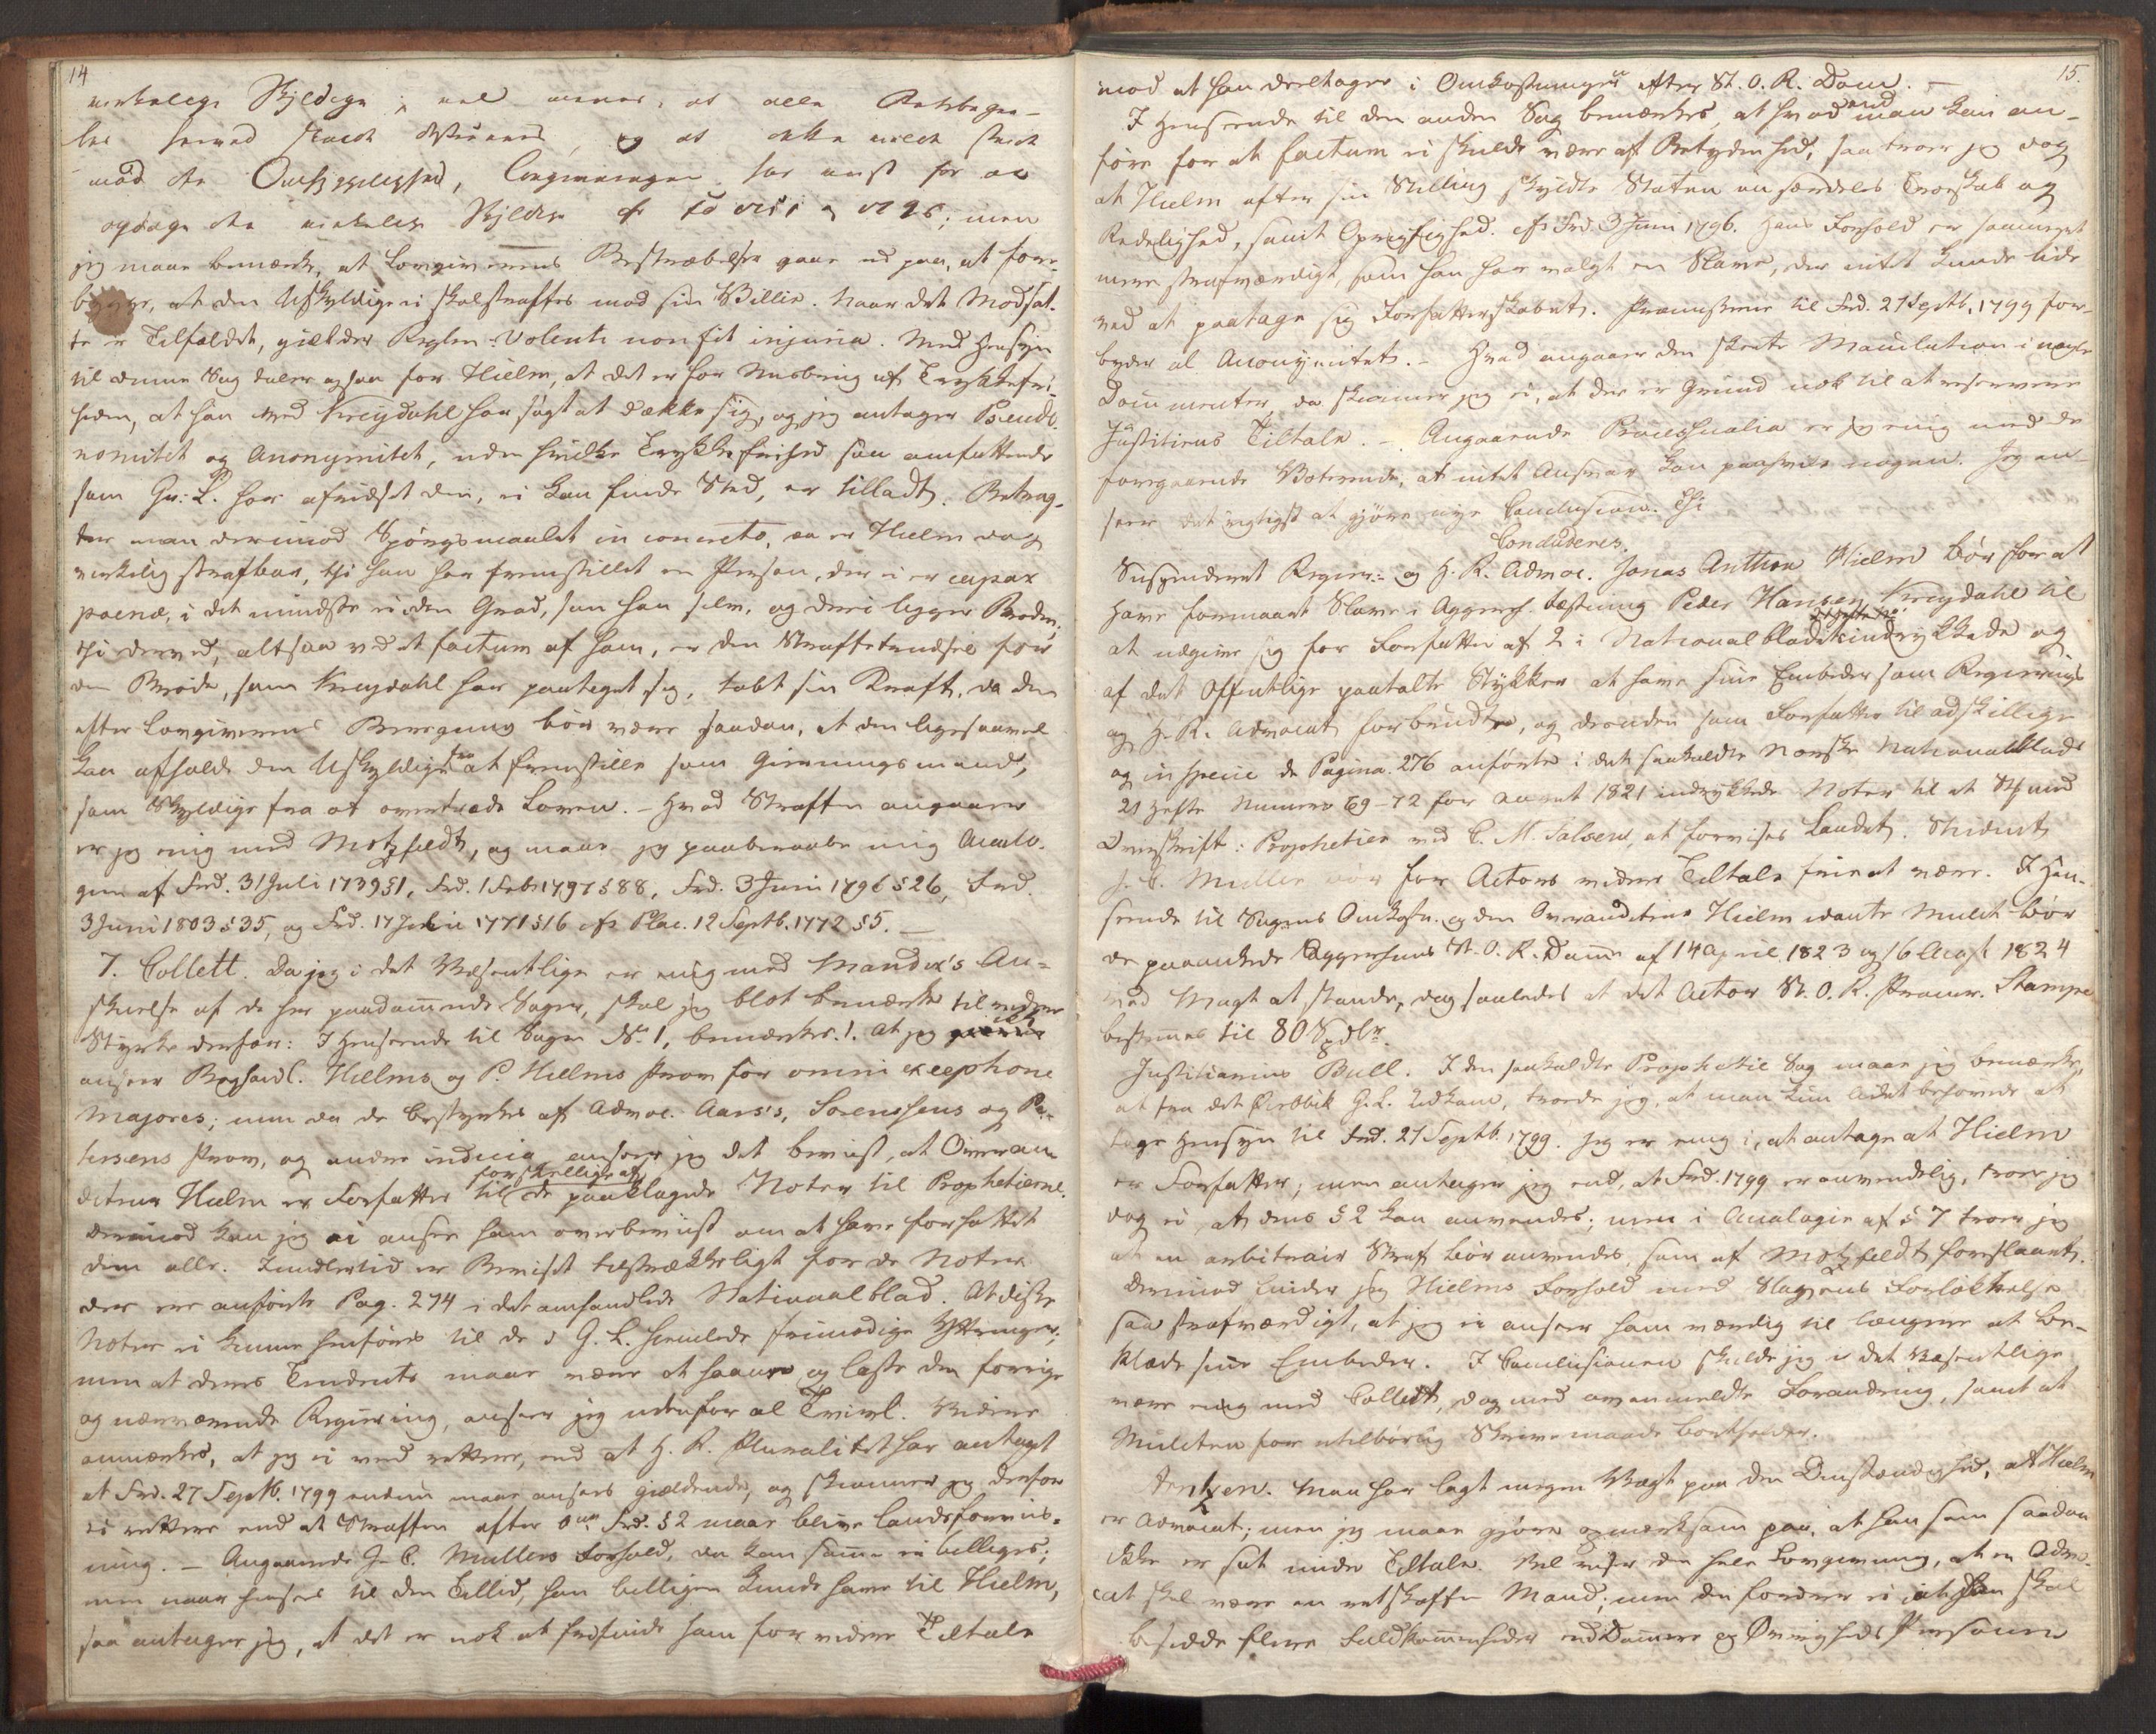 14
virkelige Skyldige; vel anes, at alle Retsbegre-
ber herved stode, og at dette vilde stride
mod den Omhyggelighed, Lovgivningen har viist for at
opdage den virkelige Skyldige cfr 10 ; men
jeg maae bemærke, at Lovgiverens Bestræbelse gaar ud paa, at fore-
bygge, at den Uskyldige ei skal straffes mod sin Villie. Naar det Modsat-
te er Tilfældet, gielder Reglen: Volenti non fit injuria. Med Hensyn
til denne Sag taler ogsaa for Hielm, at det er for Misbrug af Trykkefri-
heden, at han ved Kreydahl har søgt at dække sig, og jeg antager Pseudo-
nomitet og Anonymitet, uden hvilke Trykkefrihed saa omfattende
som Gr: L. har afridset den, ei kan finde Sted, er tilladt. Betrag-
ter man derimod Spörgsmaalet in concreto, da er Hielm dog
virkelig strafbar, thi han har fremstillet en Person, der ei er capax
poenæ, i det mindste ei i den Grad, som han selv, og deri ligger Broden;
thi derved, altsaa ved et factum af ham, er den Straffetrudsel for
den Brøde, som Kreydahl har paataget sig, tabt sin Kraft, da den
efter Lovgiverens Beregning bör være saadan, at den ligesaavel
kan afholde den Uskyldige fra at fremstille som Gierningsmand,
som Skyldige fra at overtræde Loven. – Hvad Straffen angaaer
er jeg enig med Motzfeldt, og maae jeg paaberaabe mig Analo-
gien af Frd. 31 Juli 1739 §1, Frd. 1 Febr 1797 §88, Frd. 3 Juni 1796 §26, Frd.
3 Juni 1803 §35, og Frd. 17 1771 §16 cfr Plac. 12 Septb. 1772 §5. –
7. Collett. Da jeg i det Væsentlige er enig med Mandix's An-
skuelse af de her paadømmende Sager, skal jeg blot bemærke til nærmere
Styrke derfor: I Henseende til Sagen No 1, bemærkes 1. at jeg ikke
anseer Boghandl. Hielms og P. Hielms Prov for omni exeptione
majores; men da de bestyrkes af Advoc. Aars's, Sörenssens og Pe-
tersens Prov, og andre indicia, anseer jeg det beviist, at Overau-
diteur Hielm er Forfatter til forskellige af de paaklagede Noter til Prophetierne.
derimod kan jeg ei ansee ham overbeviist om at have forfattet
dem alle. Imidlertid er Beviset tilstrækkeligt for de Noter
der ere anførte Pag. 274 i det omhandlede Nationalblad. At diske
Noter ei kunne henføres til de i G. L. hiemlede frimodige Yttringer,
men at deres Tendents maae være at haane og laste den forrige
og nærværende Regiering, anseer jeg udenfor al Tvivl. Videre
anmærkes, at jeg ei veed rettere, end at H. R. Pluralitet har antaget
at Frd. 27 Septb. 1799 endnu maae ansees gieldende, og skiønner jeg derfor
ei rettere end at Straffen efter den Frd. §2 maae blive Landsforviis-
ning. – Angaaende J. C. Müllers Forhold, da kan samme ei billiges;
men naar henses til den Tillid, han billigen kunde have til Hielm,
saa antager jeg, at det er nok at frifinde ham for videre Tiltale
15.
mod at han deeltager i Omkostningerne efter St. O. R. Dom. –
I Henseende til den anden Sag bemærkes, at hvad end man kan an-
føre for at factum ei skulde være af Betydenhed, saa troer jeg dog
at Hielm efter sin Stilling skyldte Staten en særdeles Troeskab og
Redelighed, samt Oprigtighed. cfr Frd 3 Juni 1796. Hans Forhold er saameget
mere strafværdigt, som han har valgt en Slave, der intet kunde lide
ved at paatage sig Forfatterskabet. Præmisserne til Frd. 27 Septb. 1799 for-
byder al Anonymitet. – Hvad angaaer den skeete Maculation i nogle
Documenter, da skiønner jeg ei, at der er Grund nok til at reservere
Justitiens Tiltale. – Angaaende Processualia er jeg enig med de
foregaaende Voterende, at intet Ansvar kan paahvile nogen. Jeg an-
seer det rigtigst at gjöre nye Conclusion. Thi
Conduderes.
Suspenderet Regier: og H. R. Advoc. Jonas Anthon Hielm bör for at
have formaaet Slave i Aggersh. Fæstning Peder Hansen Kreydahl til
at udgive sig for Forfatter af 2 i Nationalbladet indrykkede og
af det Offentlige paatalte Stykker at have sine Embeder som Regierings
og H. R. Advocat forbrudte, og desuden som Forfatter til adskillige
og in specie de Pagina 276 anførte i det saakaldte norske Nationalblads
21 Hefte Numero 69-72 for Aaret 1821 indrykkede Noter til et St. med
Overskrift: Prophetier ved C. M. Falsen, at forvises Landet. Student
J. C. Müller bör for Actors videre Tiltale frie at være. I Hen-
seende til Sagens Omkostn. og den Overauditeur Hielm idømte Mulct bör
de paaankede Aggershuus St. O. R. Domme af 14 April 1823 og 16 Aug. 1824
ved Magt at stande, dog saaledes at det Actor St. O. R. Procur. Stampe
bestemes til 80 Spdlr.
Justitiarius Bull. I den saakaldte Prophetie Sag maae jeg bemærke,
at fra det G. L. Udkom, troede jeg, at man kun lidet behøvede at
tage Hensyn til Frd. 27 Septb. 1799. Jeg er enig i, at antage at Hielm
er Forfatter; men antager jeg end, at Frd. 1799 er anvendelig, troer jeg
dog ei, at dens §2 kan anvendes; men i Analogie af §7 troer jeg
at en arbitrair Straf bör anvendes, som af Motzfeldt foreslaaet.
Derimod finder jeg Hielms Forhold med Slavens Forlokkelse
saa strafværdigt, at jeg ei anseer ham værdig til længere at be-
klæde sine Embeder. I Conclusionen skulde jeg i det Væsentlige
være enig med Collett, dog med ovenmeldte Forandring, samt at
Mulcten for utilbörlig Skrivemaade bortfalder.
Arntzen. Man har lagt megen Vægt paa den Omstændighed, at Hielm
er Advocat; men jeg maae gjöre opmærksom paa, at han som saadan
ikke er sat under Tiltale. Vel viser den hele Lovgivning, at en Advo-
cat skal være en retskaffen Mand; men den fordrer ei at han skal
besidde flere Fuldkommenheder end Dommere og Øvrigheds Personer